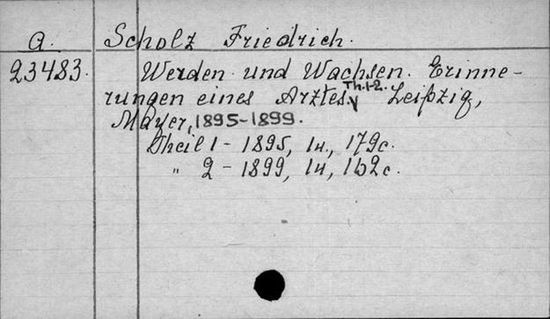 A. Scholz Friedrich.
23483. Werden und Wachsen. Erinne-
rungen eines Arztes. Th.1-2. Leipzig,
Mayer, 1895-1899.
Theil 1 - 1895, 1н., 179с.
" 2 - 1899, 1н, 162с.